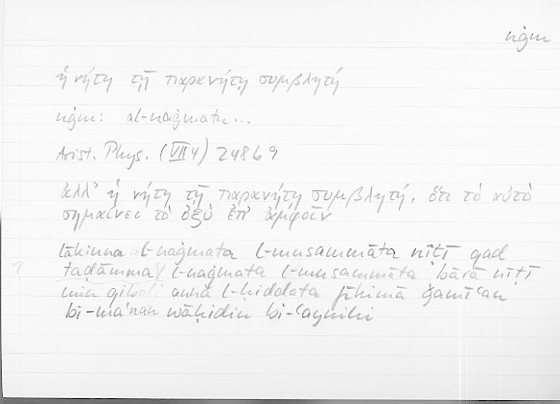 nġm
ἡ νήτη τῇ παρανήτῃ συμβλητή
nġm: al-naġmatu...
Arist. Phys. (VII 4) 248b9
ἀλλ' ἡ νήτη τῇ παρανήτῃ συμβλητή, ὅτι τὸ αὐτὸ
σημαίνει τὸ ὀξὺ ἐπ' ἀμφοῖν
lākinna al-naġmata l-musammāta nīṭī qad
? taḍāmma l-naġmata l-musammāta bārā nīṭī
min qibali anna l-ḥiddata fīhimā ǧamīʿan
bi-maʿnan wāḥidin bi-ʿaynihi